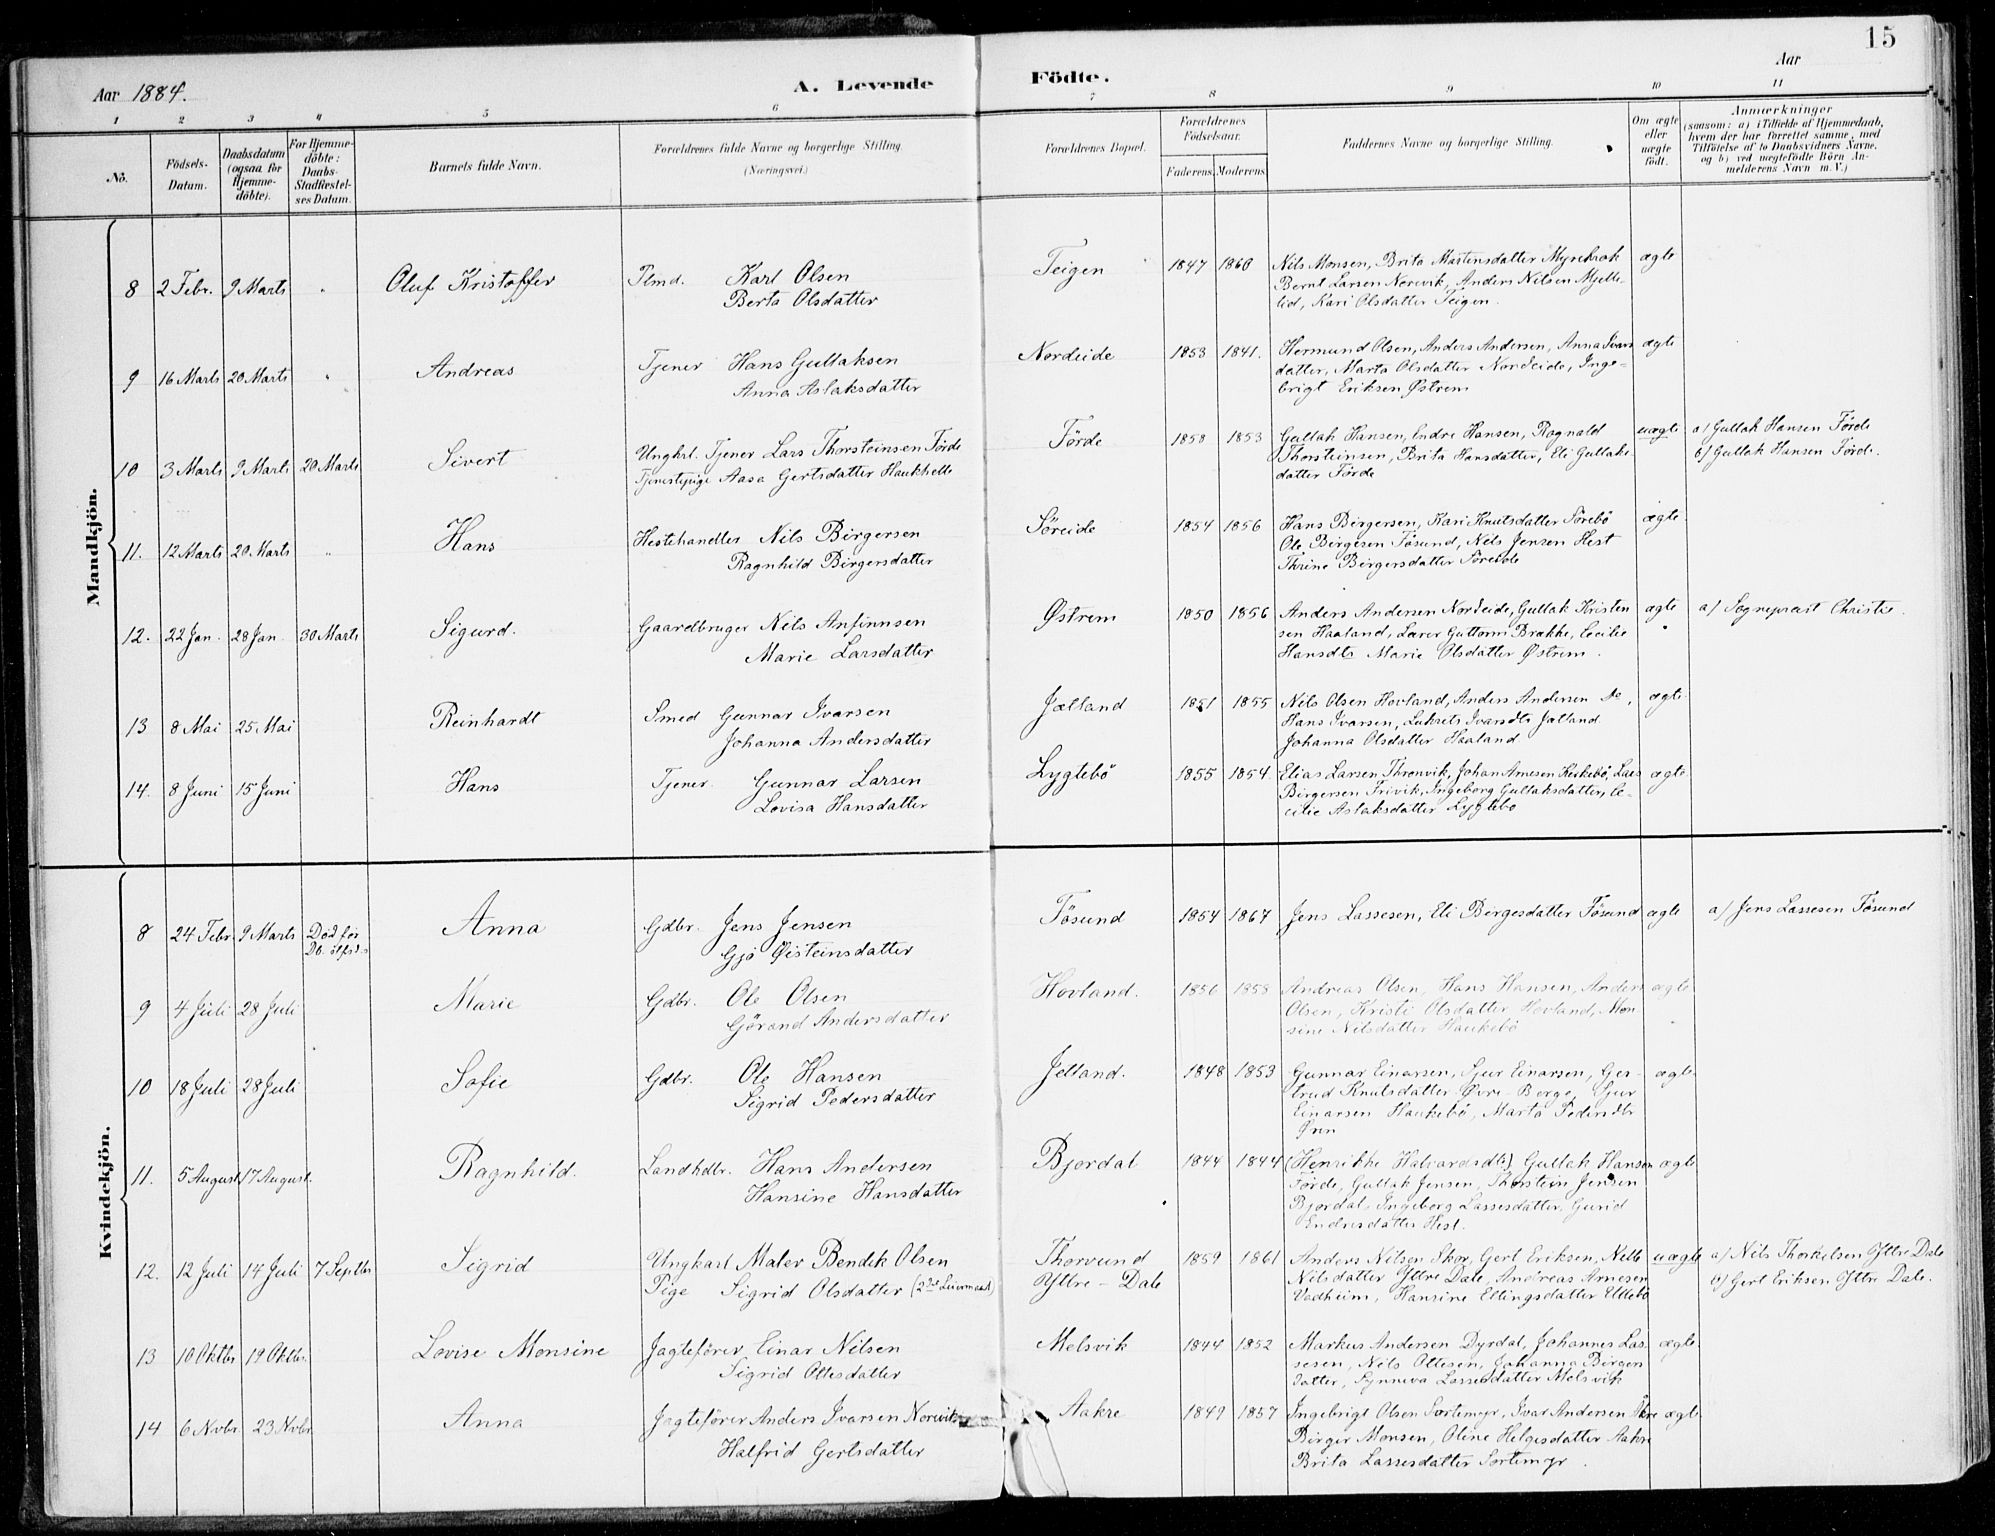 15
Aar 1884.
A. Levende
Födte.
Aar
1 2 3 4 5 6 7 8 9 10 11
No.
Födsels-Datum.
Daabsdatum (ogsaa for Hjemme-döbte).
For Hjemme-döbte: Daabs-Stadfæstel-ses Datum.
Barnets fulde Navn.
Forældrenes fulde Navne og borgerlige Stilling.
(Næringsvei.)
Forældrenes Bopæl.
Forældrenes Födselsaar.
Faderens. Moderens.
Faddernes Navne og borgerlige Stilling.
Om ægte eller uægte födt.
Anmærkninger
(saasom: a) i Tilfælde af Hjemmedaab,
hvem der har forrettet samme, med
Tilföielse af to Daabsvidners Navne,
og b) ved uægtefödte Börn An-
melderens Navn m. V.)
Mandkjön.
8 2 Febr. 9 Marts " Oluf Kristoffer Plmd. Karl Olsen Teigen 1847 1860 Nils Monsen, Brita Martinsdatter Myrekrok ægte
Berta Olsdatter Bernt Larsen Norevik, Anders Nilsen Mjelle-
lid, Kari Olsdatter Teigen.
9 16 Marts 20 Marts " Andreas Tjener Hans Gullaksen Nordeide 1853 1841. Hermund Olsen, Anders Andersen, Anna Ivars ægte
Anna Aslaksdatter datter, Marta Olsdatter Nordeide, Inge-
brigt Eriksen Østrem
10 3 Marts 9 Marts 20 Marts Sivert Ungkrl. Tjener Lars Thorsteinsen Førde Førde 1858 1853 Gullak Hansen, Endre Hansen, Ragnald uægte a) Gullak Hansen Førde
Tjenestepige Aasa Gertsdatter Haukhelle Thorsteinsen, Brita Hansdatter, Eli Gullaks- b) Gullak Hansen Førde.
datter Førde
11. 12 Marts 20 Marts " Hans Hestehandler Nils Birgersen Søreide 1854 1856 Hans Birgersen, Kari Knutsdatter Sørebø ægte.
Ragnhild Birgersdatter Ole Birgesen Tøsund, Nils Jensen Hest
Thrine Birgersdatter Søreide
12. 22 Jan. 28 Jan. 30 Marts Sigurd. Gaardbruger Nils Anfinnsen Østrem 1850 1856 Anders Andersen Nordeide, Gullak Kristen ægte a) Sognepræst Christie.
Marie Larsdatter sen Haaland, Lærer Guttorm Brække, Cecilie
Hansdtr Marie Olsdatter Østrem.
13 8 Mai 25 Mai Reinhardt Smed Gunnar Ivarsen Jælland 1851 1855 Nils Olsen Hovland, Anders Andersen Do, ægte.
Johanna Andersdatter Hans Ivarsen, Lukrets Ivarsdtr Jælland
Johanna Olsdatter Haaland
14. 8 Juni 15 Juni Hans Tjener. Gunnar Larsen Lygtebö 1855 1854. Elias Larsen Thronvik, Johan Arnesen Kirkebö, Lars ægte
Lovisa Hansdatter Birgersen Trivik, Ingeborg Gullaksdatter, Ce-
cilie Aslaksdatter Lygtebö
Kvindekjön.
8 24 Febr. 9 Marts Död før Anna Gdbr. Jens Jensen Tösund 1854 1867 Jens Lassesen, Eli Birgesdatter Tösund ægte a) Jens Lassesen Tösund
Gjø Øisteinsdatter
9 4 Juli 28 Juli Marie Gdbr. Ole Olsen Hovland. 1856 1858 Andreas Olsen, Hans Hansen, Anders ægte
Gørand Andersdatter Olsen, Kristi Olsdatter Hovland, Mon
sine Nilsdatter Haukebö
10 18 Juli 28 Juli Sofie Gdbr. Ole Hansen Jelland. 1848 1853 Gunnar Einarsen, Sjur Einarsen, Ger- ægte
Sigrid Pedersdatter trud Knutsdatter Øvre Berge, Sjur
Einarsen Haukebö, Marta Pedersdtr
Ønn
11. 5 August 17 August. Ragnhild. Landhdlr. Hans Andersen Bjordal 1844 1844 (Henrikke Halvardsdtr) Gullak Hansen ægte
Hansine Hansdatter Førde, Gullak Jensen, Thorstein Jensen
Bjordal, Ingeborg Lassesdatter, Gurid
Endresdatter Hest.
12. 12 Juli 14 Juli 7 Septbr Sigrid Ungkarl Maler Bendik Olsen Thorvund 1859 1861 Anders Nilsen Skor, Gert Eriksen, Nille uægte a) Nils Thorkelsen Yttre Dale
Pige Sigrid Olsdatter (2det Leiermaal) Yttre-Dale Nilsdatter Yttre Dale, Andreas Arnesen b) Gert Eriksen Yttre Dale.
Vadheim, Hansine Ellingsdatter Ullebö
13 10 Oktbr 19 Oktbr. Lovise Monsine Jagtefører Einar Nilsen Melsvik 1844 1852 Markus Andersen Dyrdal, Johannes Las- ægte.
Sigrid Ottesdatter sesen, Nils Ottesen, Johanna Birger
datter, Synneva Lassesdatter Melsvik
14 6 Novbr 23 Novbr Anna Jagtefører Anders Ivarsen Norevik Aakre 1849 1857 Ingebrigt Olsen Sortemyr, Ivar Andersen Åkre ægte
Halfrid Gertsdatter Birger Monsen, Oline Helgesdatter Aakre
Brita Lassesdatter Sortemyr.